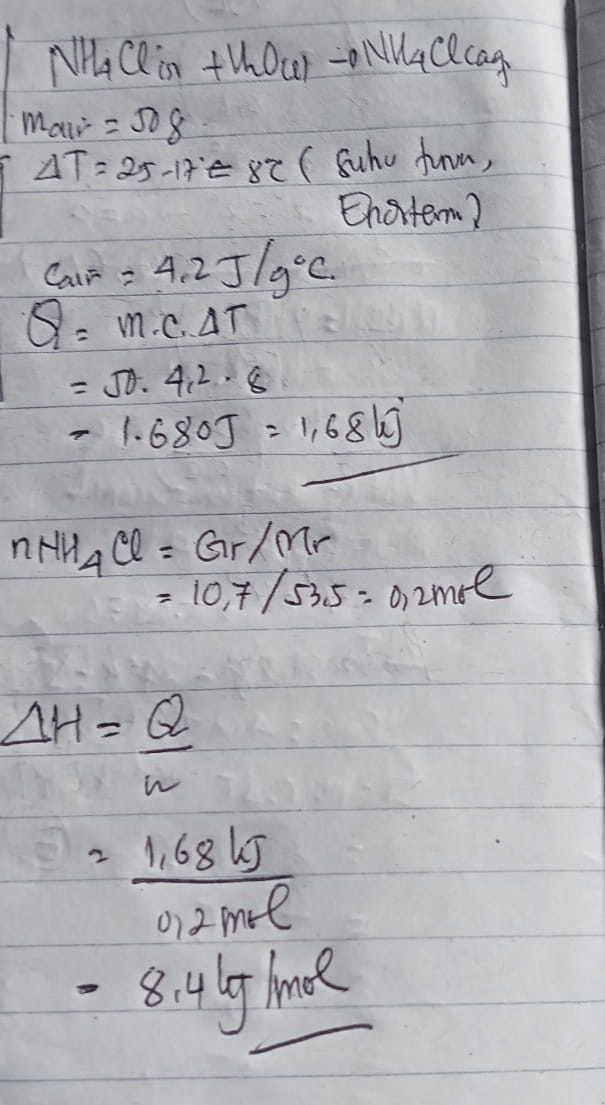 NH4Cl(s) + H2O(l) → NH4Cl(aq)
mair = 50 g
ΔT = 25-17 = 8℃ (Suhu turun,
Endoterm)
Cair = 4.2 J/g°C.
Q = m.c. ΔT
= 50. 4,2 . 8
= 1.680J = 1,68 kJ
nNH4Cl = Gr/Mr
= 10,7/53,5 = 0,2 mol
ΔH = Q
n
= 1,68 kJ
0,2 mol
= 8,4 kJ/mol